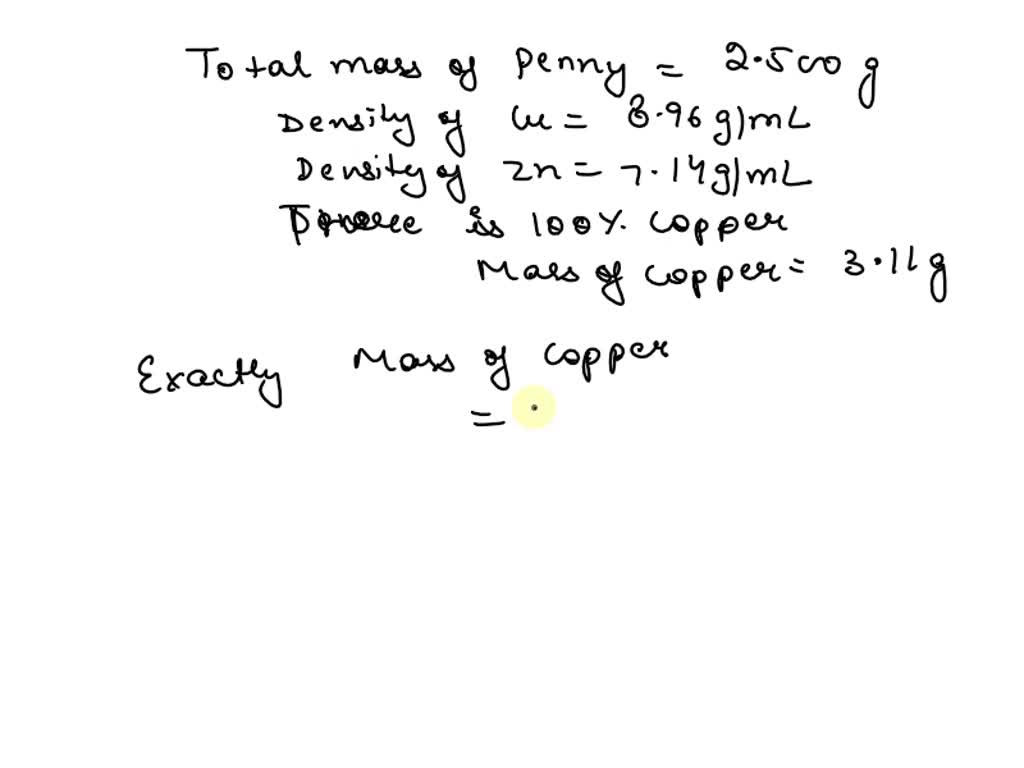 Total mass of Penny = 2.500 g
Density of Cu = 8.96 g/mL
Density of Zn = 7.14 g/mL
is 100%. copper
Mass of copper = 3.11 g
Exactly Mass of copper
=